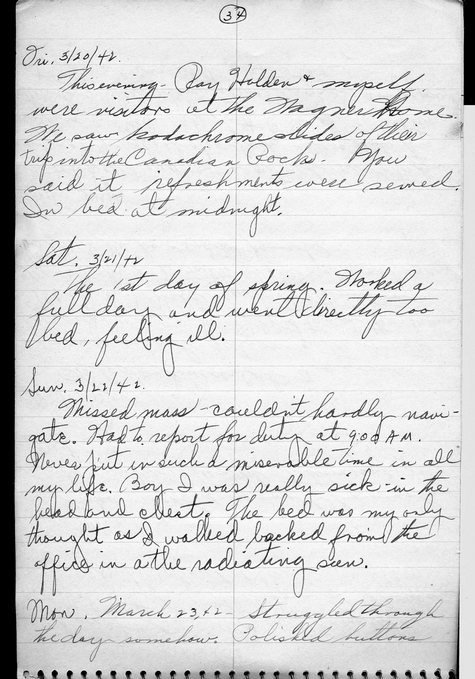 34
Fri, 3/20/42.
This evening - Ray Holden & myself
were visitors at the Wagner Home.
We saw kodachrome slides of their
trip into the Canadian Rocks. You
said it, refreshments were served.
In bed at midnight.
Sat. 3/21/42
The 1st day of spring. Worked a
full day and went directly too
bed, feeling ill.
Sun, 3/22/42.
Missed mass - couldn't hardly navi-
gate. Had to report for duty at 9:00 AM.
Never put in such a miserable time in all
my life. Boy I was really sick - in the
head and chest. The bed was my only
thought as I walked backed from the
office in a the radiating sun.
Mon. March 23, 42 - Struggled through
the day somehow. Polished buttons